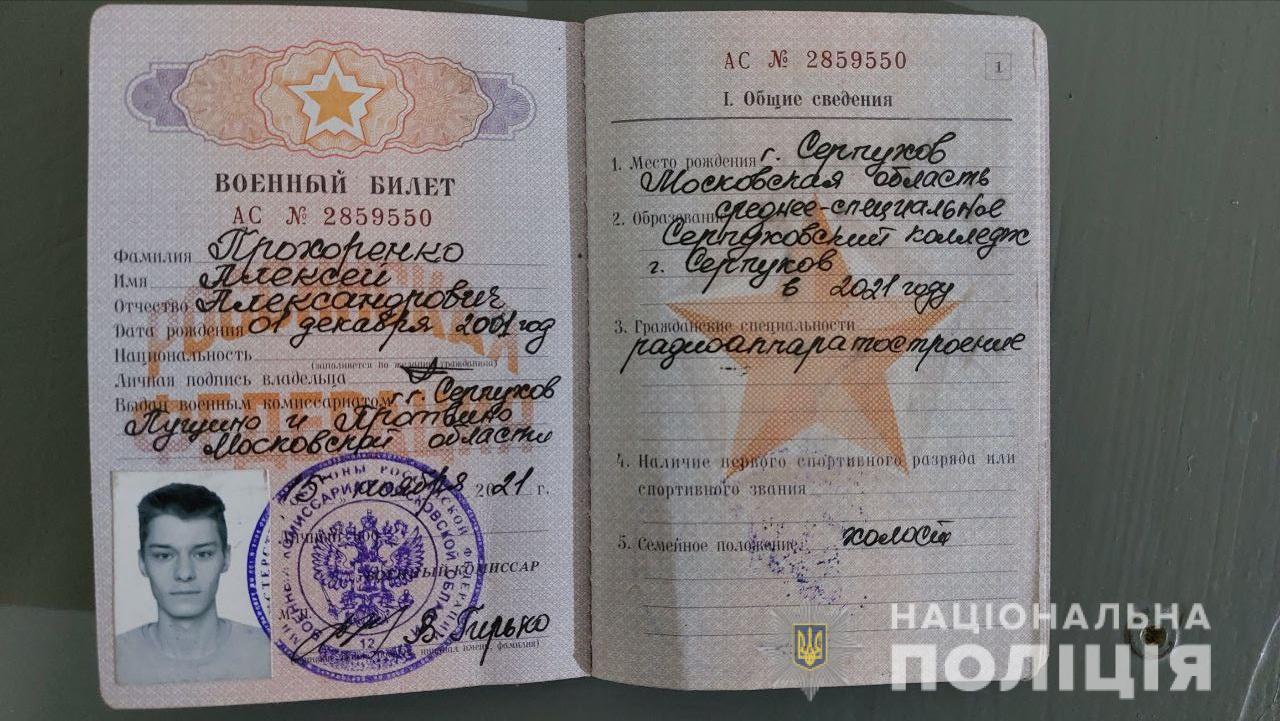 ВОЕННЫЙ БИЛЕТ
АС № 2859550
Фамилия Прохоренко
Имя Алексей
Отчество Александрович
Дата рождения 01 декабря 2001 год
Национальность
(заполняется по желанию гражданина)
Личная подпись владельца
Выдан военным комиссариатом г.г. Серпухов
Пущино и Протвино
Московской области
ноября 2021 г.
ВОЕННЫЙ КОМИССАР
М.П.
В. Гирько
АС № 2859550
1
I. Общие сведения
1. Место рождения г. Серпухов
Московская область
2. Образование среднее-специальное
Серпуховский колледж
г. Серпухов
в 2021 году
3. Гражданские специальности
радиоаппаратостроение
4. Наличие первого спортивного разряда или
спортивного звания
5. Семейное положение холост
НАЦІОНАЛЬНА
ПОЛІЦІЯ